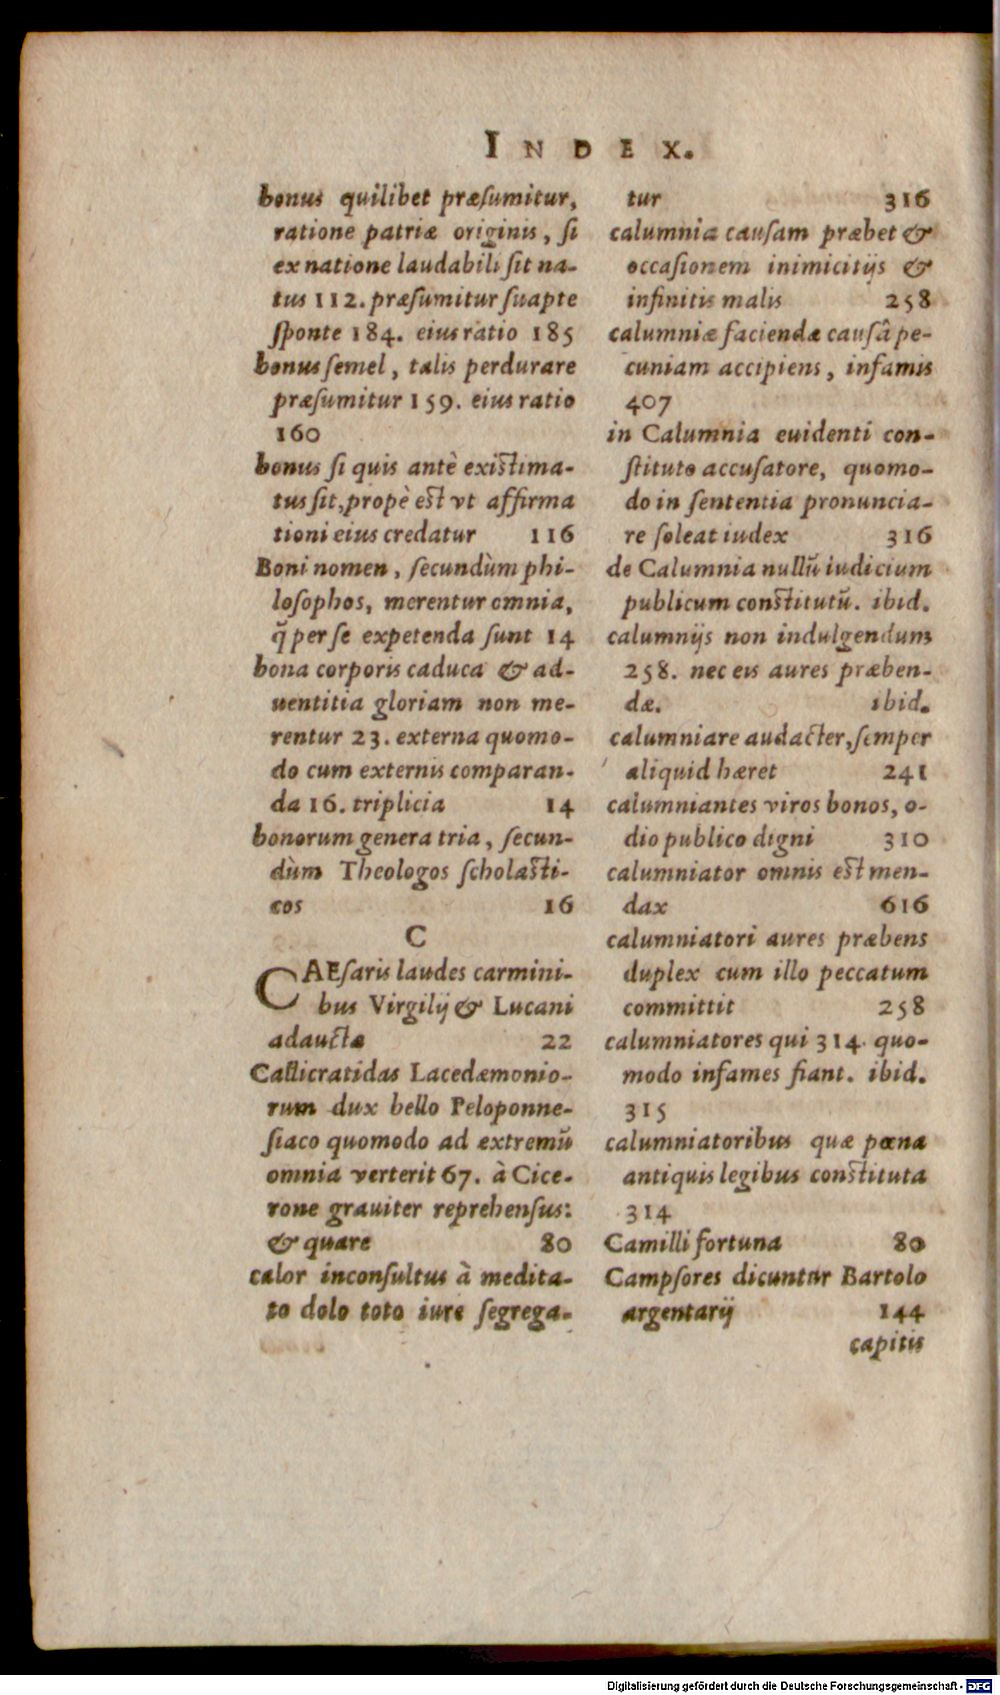 INDEX.
bonus quilibet præſumitur,
ratione patriæ originis, ſi
ex natione laudabili ſit na-
tus 112. præſumitur ſuapte
ſponte 184. eius ratio 185
bonus ſemel, talis perdurare
præſumitur 159. eius ratio
160
bonus ſi quis antè exiſtima-
tus ſit, propè eſt vt affirma
tioni eius credatur 116
Boni nomen, ſecundùm phi-
loſophos, merentur omnia,
q̃ per ſe expetenda ſunt 14
bona corporis caduca & ad-
uentitia gloriam non me-
rentur 23. externa quomo-
do cum externis comparan-
da 16. triplicia 14
bonorum genera tria, ſecun-
dùm Theologos ſcholaſti-
cos 16
C
CAEſaris laudes carmini-
bus Virgilij & Lucani
adauctæ 22
Callicratidas Lacedæmonio-
rum dux bello Peloponne-
ſiaco quomodo ad extremũ
omnia verterit 67. à Cice-
rone grauiter reprehenſus:
& quare 80
calor inconſultus à medita-
to dolo toto iure ſegrega-
tur 316
calumnia cauſam præbet &
occaſionem inimicitijs &
infinitis malis 258
calumniæ faciendæ cauſâ pe-
cuniam accipiens, infamis
407
in Calumnia euidenti con-
ſtituto accuſatore, quomo-
do in ſententia pronuncia-
re ſoleat iudex 316
de Calumnia nullũ iudicium
publicum conſtitutũ. ibid.
calumnijs non indulgendum
258. nec eis aures præben-
dæ. ibid.
calumniare audacter, ſemper
aliquid hæret 241
calumniantes viros bonos, o-
dio publico digni 310
calumniator omnis eſt men-
dax 616
calumniatori aures præbens
duplex cum illo peccatum
committit 258
calumniatores qui 314. quo-
modo infames fiant. ibid.
315
calumniatoribus quæ pœna
antiquis legibus conſtituta
314
Camilli fortuna 80
Campſores dicuntur Bartolo
argentarij 144
capitis
Digitalisierung gefördert durch die Deutsche Forschungsgemeinschaft - DFG